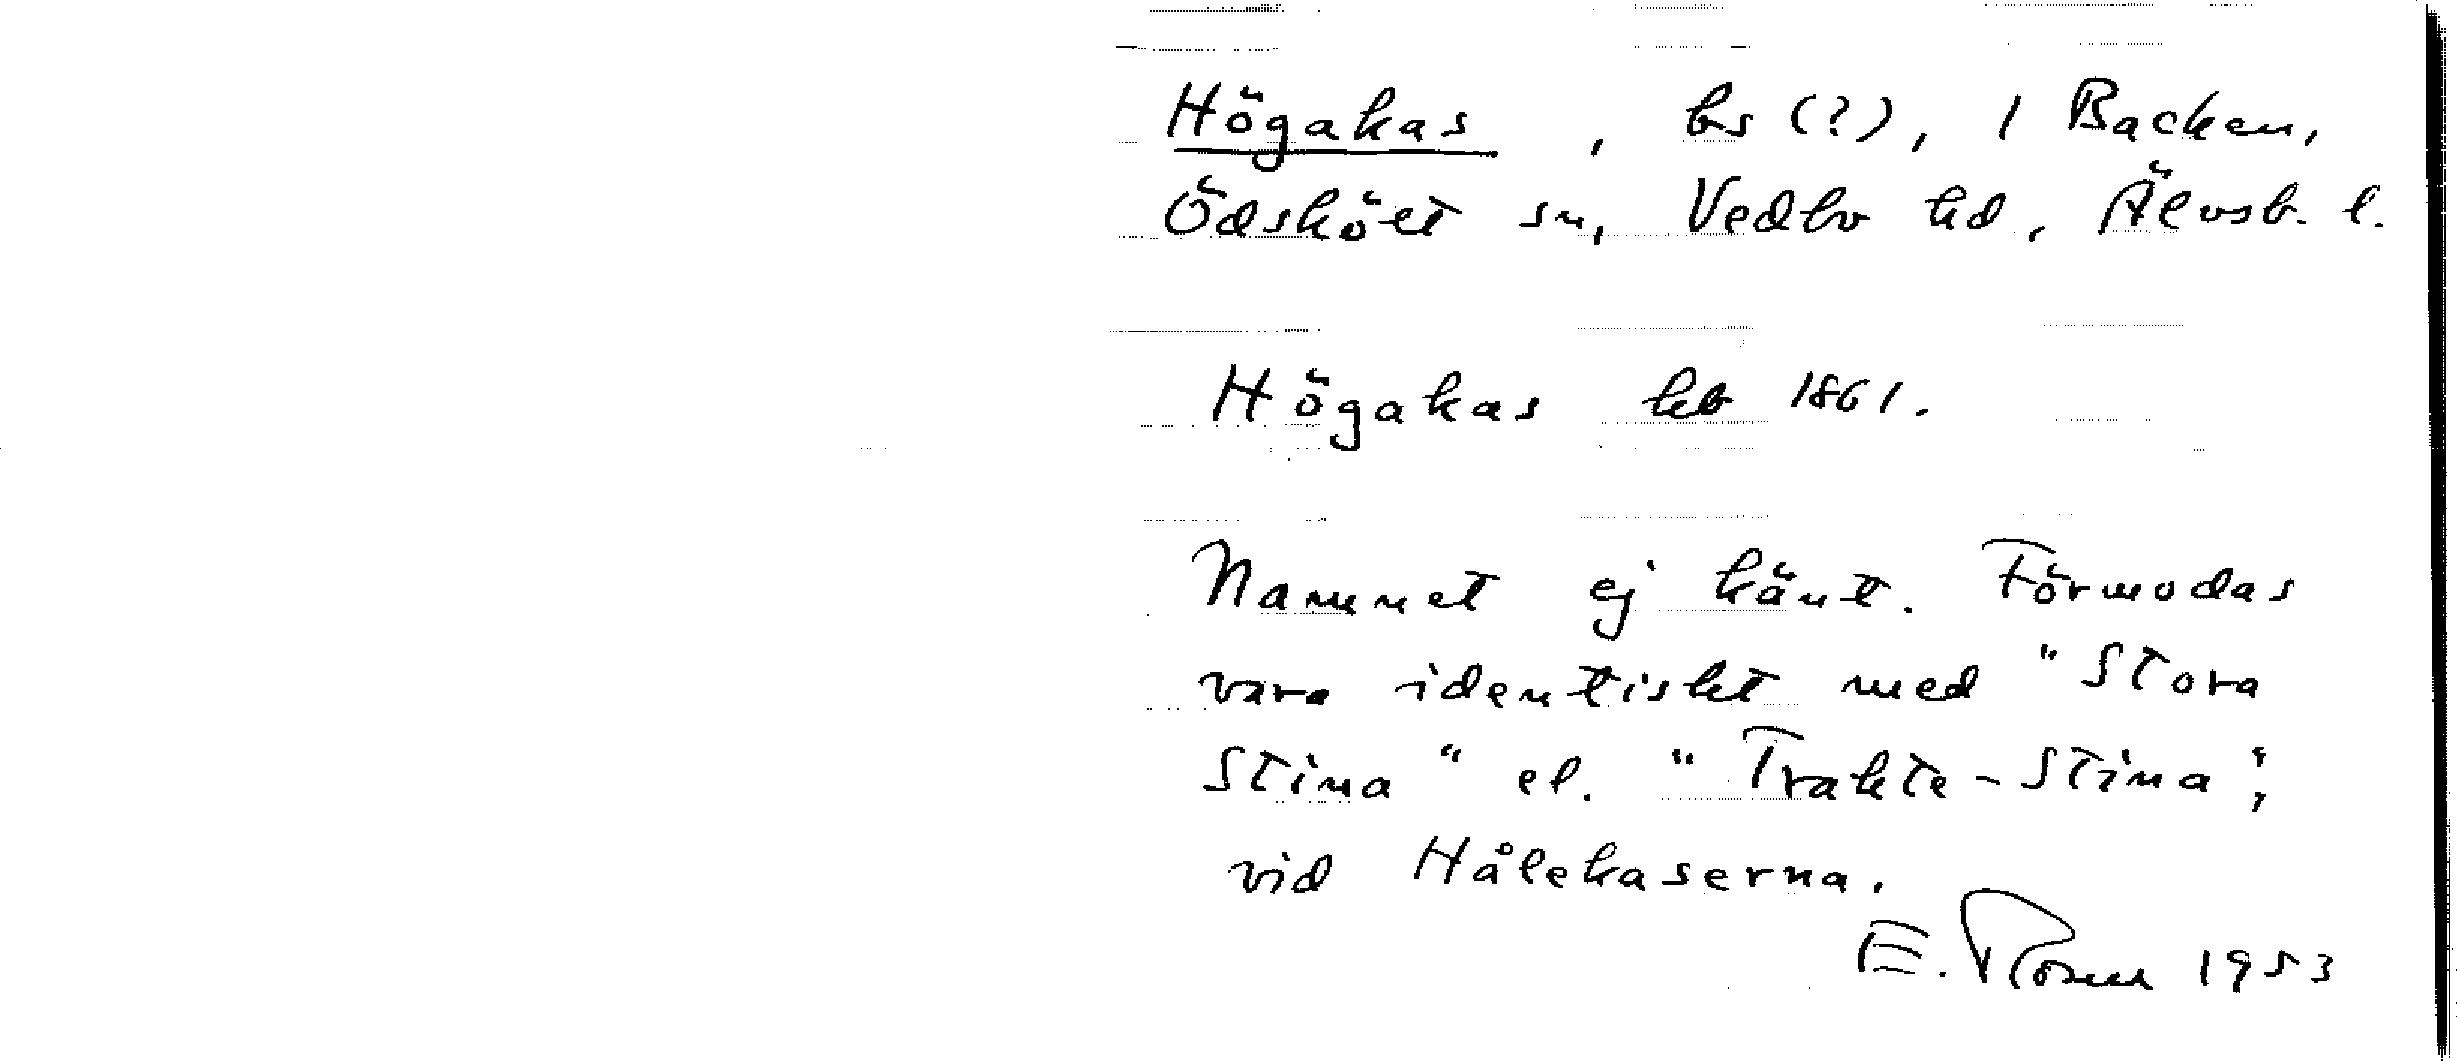 Högakas, bs (?), 1 Backen,
Ödskölt sn, Vedbo hd, Älvsb. l.
Högakas hb 1861.
Namnet ej känt. Förmodas
vara identiskt med "Stora
Stina" el. "Trakte-Stina",
vid Hålekaserna.
E. Rosen 1953